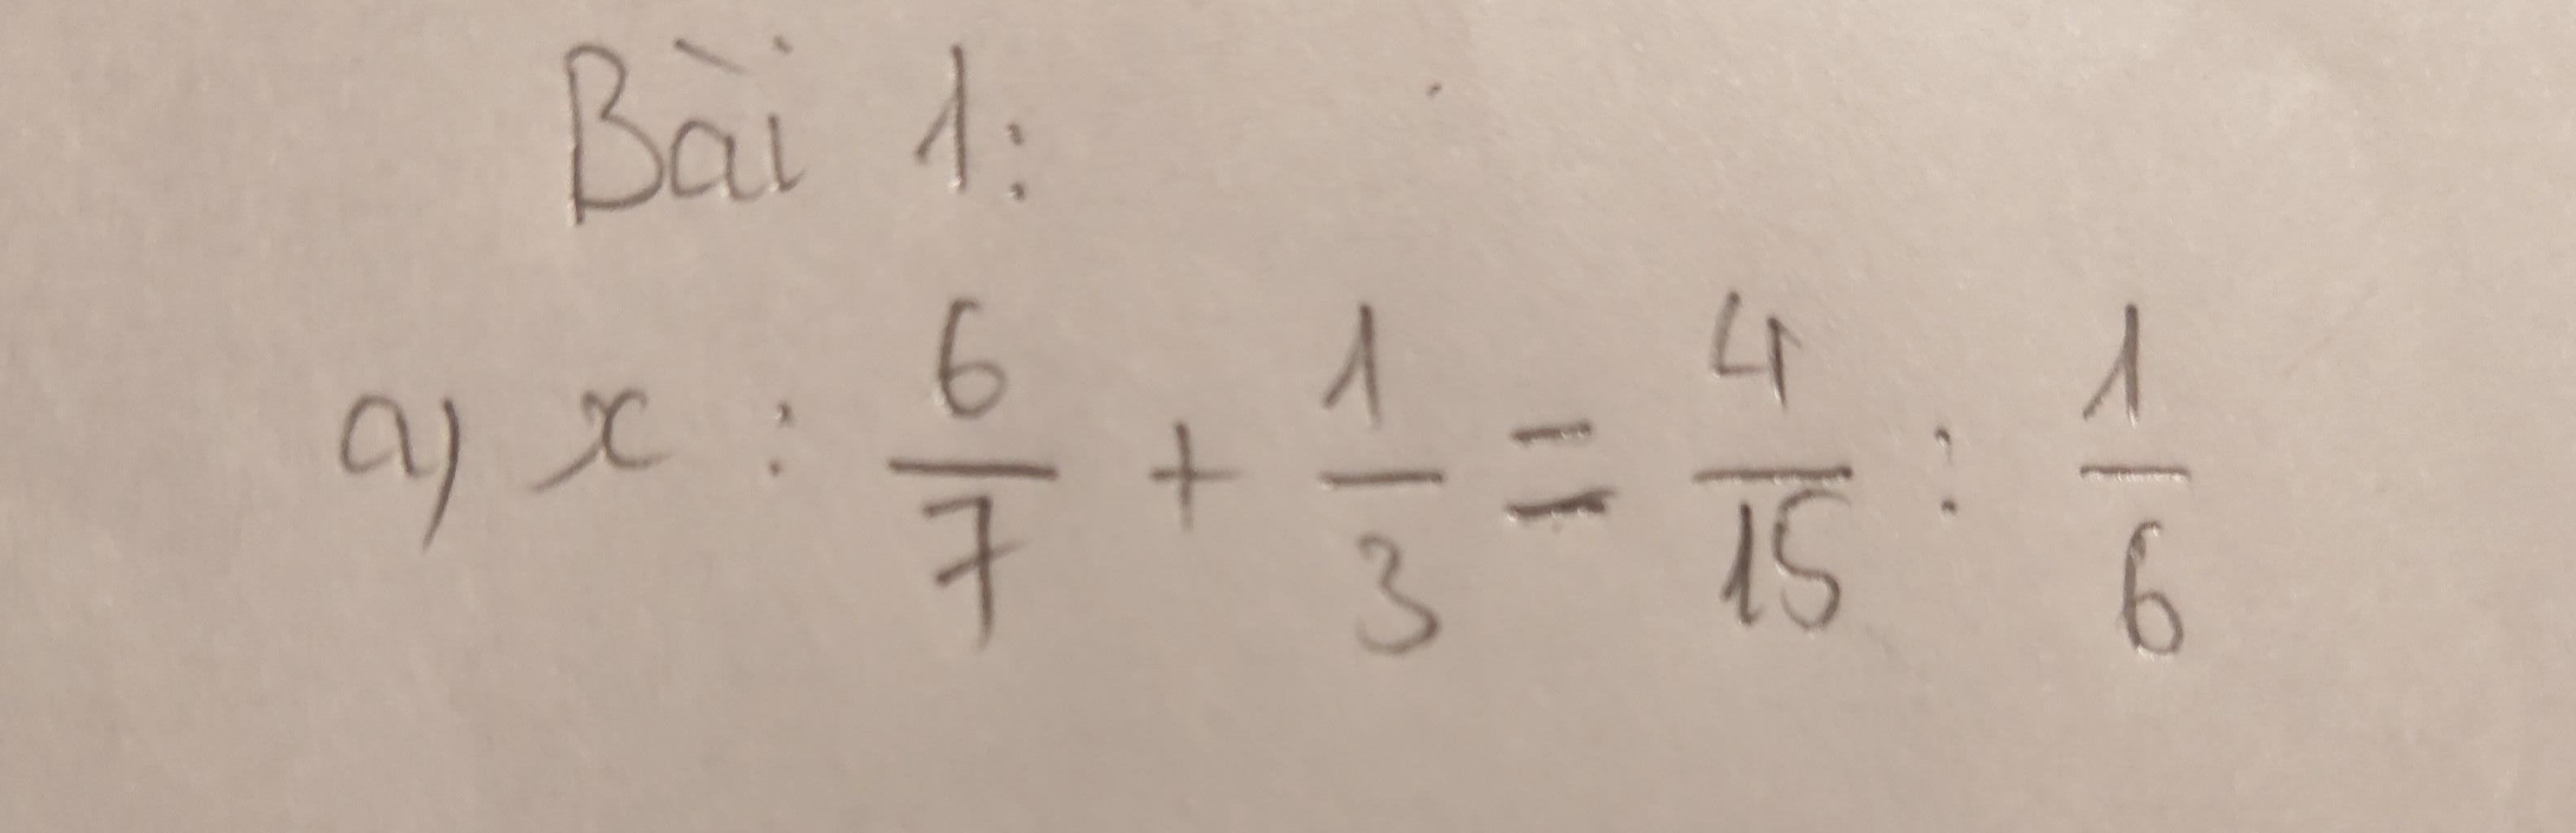 Bài 1:
a) x : 6/7 + 1/3 = 4/15 : 1/6